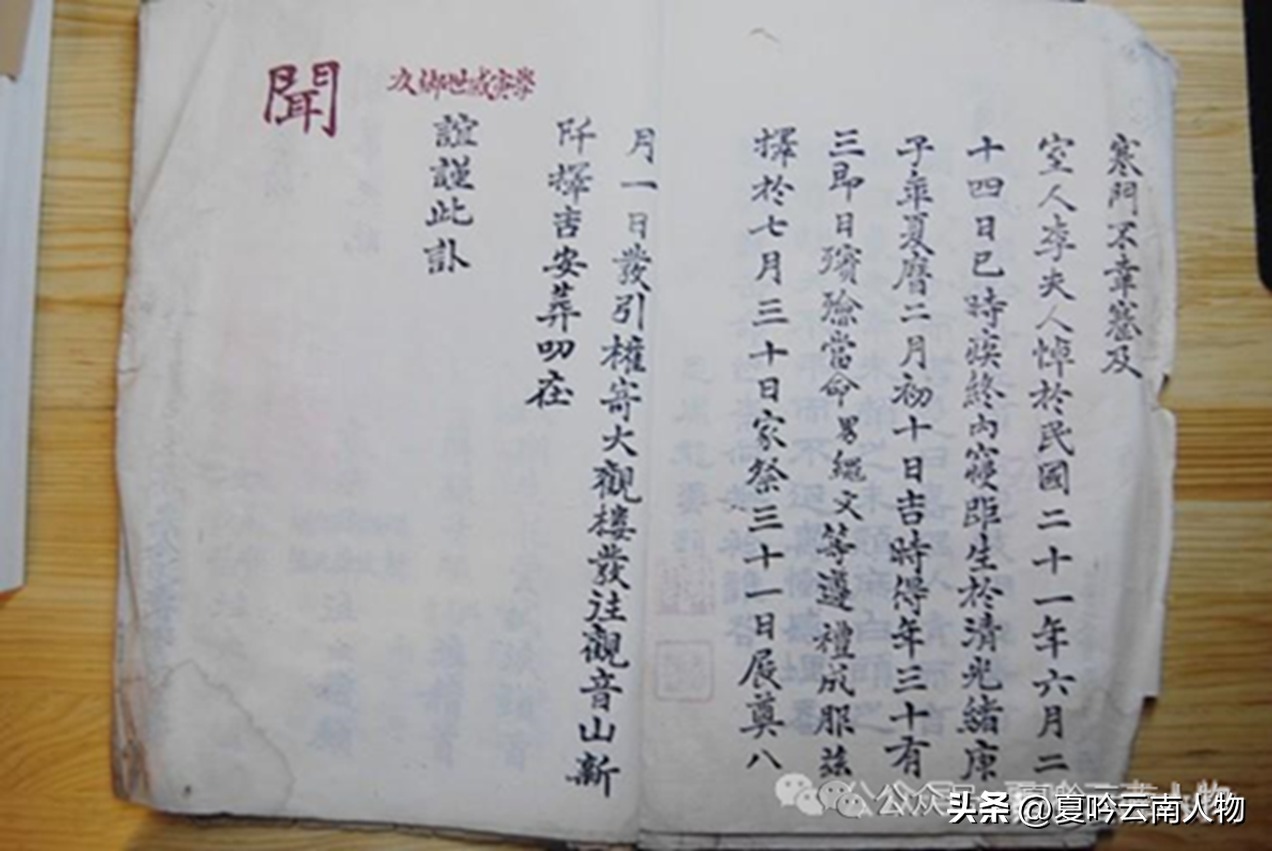 寒門不幸蹇及
室人李夫人悼於民國二十一年六月二
十四日巳時疾終內寢距生於清光緒庚
子年夏曆二月初十日吉時得年三十有
三即日殯殮當命男繩文等遵禮成服茲
擇於七月三十日家祭三十一日展奠八
月一日發引權寄大觀樓發注觀音山新
阡擇吉安葬叨在
學寅戚世鄉友
誼謹此訃
聞
公众号
夏吟云南人物
头条@夏吟云南人物